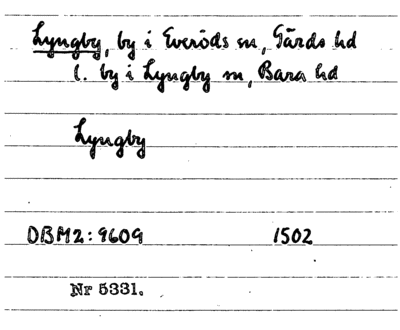 Lyngby, by i Everöds sn, Gärds hd
l. by i Lyngby sn, Bara hd
Lyngby
DBM2: 9609 1502
Nr 5331.